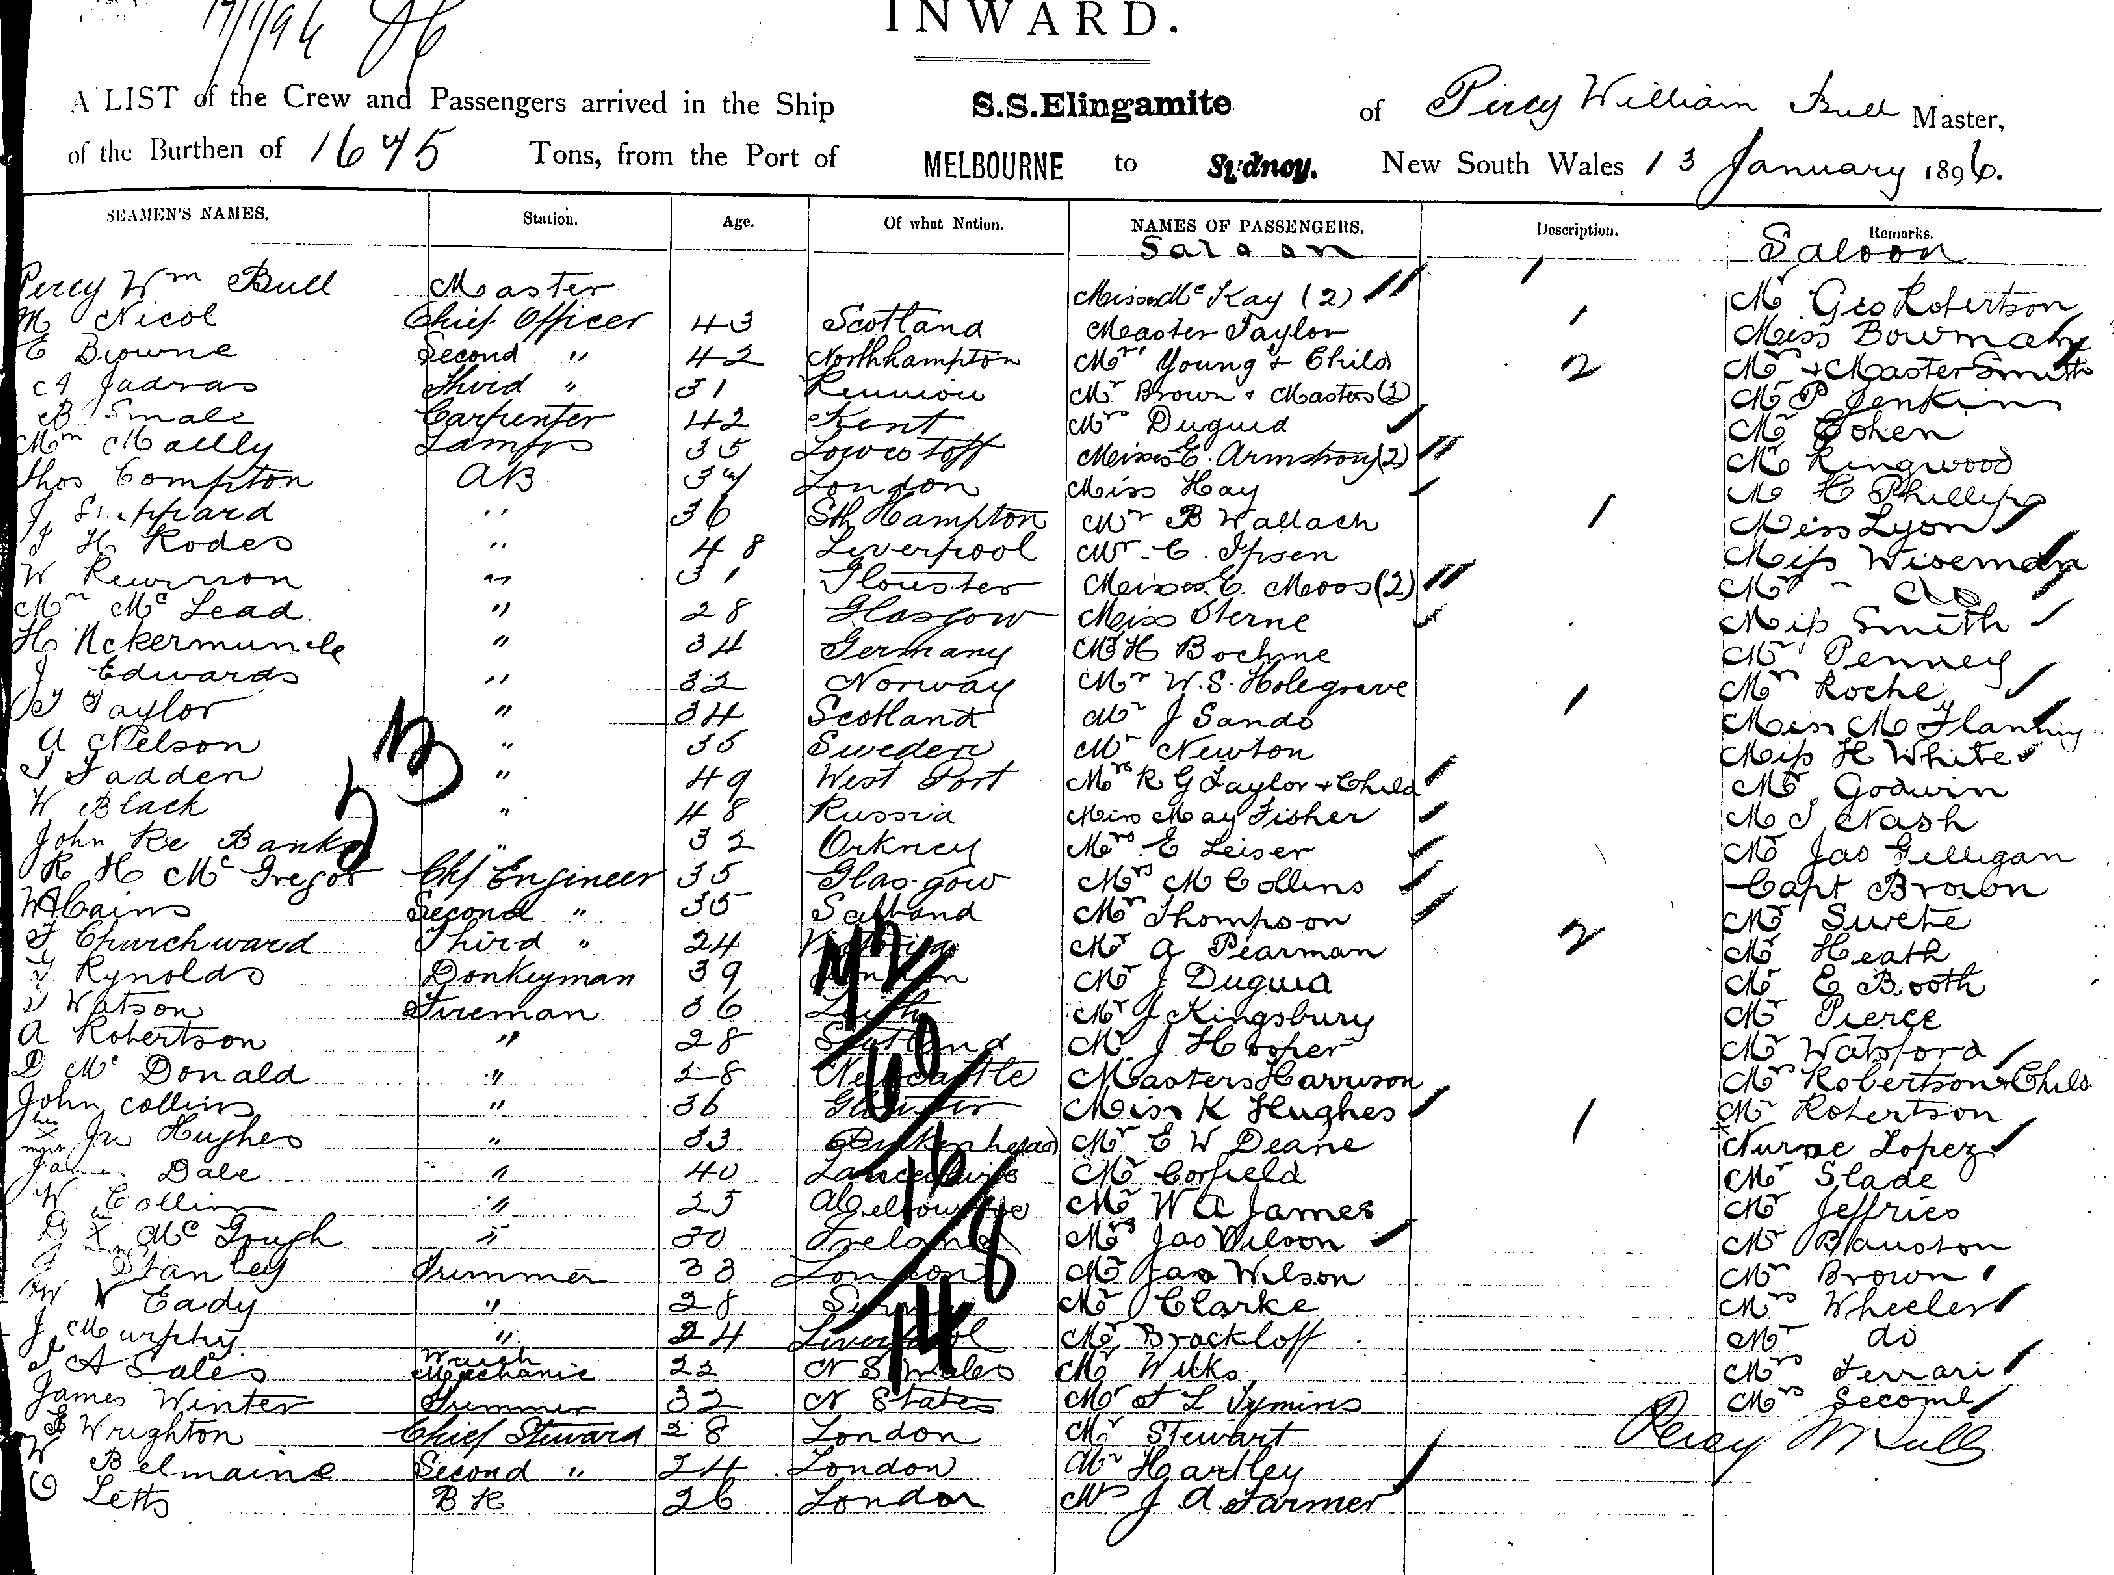 17/1/96
INWARD.
A LIST of the Crew and Passengers arrived in the Ship S.S.Elingamite of Percy William Bull Master,
of the Burthen of 1675 Tons, from the Port of MELBOURNE to Sydney. New South Wales 13 January 1896.
SEAMEN'S NAMES. Station. Age. Of what Nation. NAMES OF PASSENGERS. Description. Remarks.
Saloon Saloon
Percy Wm Bull Master Misses McKay (2) Mr Geo Robertson
M Nicol Chief Officer 43 Scotland Master Taylor Miss Bowman
E Browne Second " 42 Northhampton Mrs Young & Child 2 Mrs & Master Smith
A Jadras Third " 31 Reunion Mr Brown & Masters (2) Mr P Jenkins
B Smale Carpenter 42 Kent Mrs Duguid Mr Cohen
Wm Mailly Lamps 35 Lowestoff Misses E. Armstrong (2) Mr Ringwood
Thos Compton AB 37 London Miss Hay Mr H Phillips
J Sheppard " 36 Sth Hampton Mr B Wallach 1 Miss Lyon
J H Rodes " 48 Liverpool Mr C. Ipsen Miss Wiseman
W " 31 Glouster Misses E. Moos (2) Mr
Wm McLead " 28 Glasgow Miss Sterne Miss Smith
H Ackermuncle " 34 Germany Mr H Boehme Mr Penney
J Edwards " 32 Norway Mr W. S. Holegrave Mrs Roche
Taylor " 34 Scotland Mr J Sands 1 Miss M Flan
A Nelson " 35 Sweden Mr Newton Miss H White
J Fadden " 49 West Port Mrs R G Taylor & Child Mr Godwin
W Black " 48 Russia Miss May Fisher Mr J Nash
John Re Banks " 32 Orkney Mrs E Leiser Mr Jas Gilligan
R H McGregor Chf Engineer 35 Glasgow Mrs M Collins Capt Brown
W Cairns Second " 35 Scotland Mrs Thompson Mr Swete
F Churchward Third " 24 Victoria Mr A Pearman 2 Mr Heath
Rynolds Donkeyman 39 London Mr J Duguid Mr E Booth
Watson Fireman 36 Leith Mr J Kingsbury Mr Pierce
A Robertson " 28 Scotland Mr J Hooper Mr Watsford
D McDonald " 28 Newcastle Masters Harrison Mrs Robertson & Child
John Collins " 36 Miss K Hughes Mr Robertson
Jn Hughes " 33 Birkenhead Mr E W Deane 1 Nurse Lopez
Dale " 40 Mr Corfield Mr Slade
W Collins " 25 Melbourne Mr W A James Mr Jeffries
McGough " 30 Ireland Mrs Jas Wilson Mr Blauston
J Stanley Trimmer 33 London Mr Jas Wilson Mrs Brown
W Eady " 28 Mr Clarke Mrs Wheeler
J Murphy " 24 Liverpool Mr Brockloff Mr do
A Sales Winch Mechanic 22 N S Wales Mr Wilks Mrs Ferrari
James Winter Trimmer 32 N States Mr F L Tymins Mrs Secomb
Wrighton Chief Steward 28 London Mr Stewart Percy W Bull
W Belmaine Second " 24 London Mr Hartley
C Letts BR 26 London Mrs J. A. Farmer